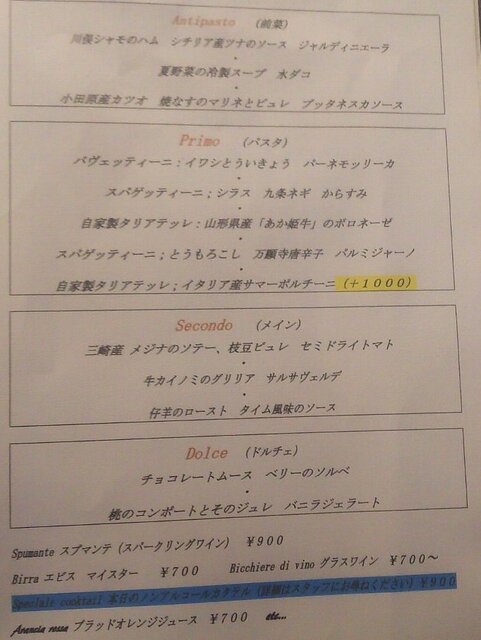 Antipasto (前菜)
川俣シャモのハム シチリア産ツナのソース ジャルディニエーラ
・
夏野菜の冷製スープ 水ダコ
・
小田原産カツオ 焼なすのマリネとピュレ プッタネスカソース
Primo (パスタ)
バヴェッティーニ;イワシとういきょう パーネモッリーカ
・
スパゲッティーニ;シラス 九条ネギ からすみ
・
自家製タリアテッレ;山形県産「あか姫牛」のボロネーゼ
・
スパゲッティーニ;とうもろこし 万願寺唐辛子 パルミジャーノ
・
自家製タリアテッレ;イタリア産サマーポルチーニ(+1000)
Secondo (メイン)
三崎産 メジナのソテー、枝豆ピュレ セミドライトマト
・
牛カイノミのグリリア サルサヴェルデ
・
仔羊のロースト タイム風味のソース
Dolce (ドルチェ)
チョコレートムース ベリーのソルベ
・
桃のコンポートとそのジュレ バニラジェラート
Spumante スプマンテ(スパークリングワイン) ¥900
Birra エビス マイスター ¥700 Bicchiere di vino グラスワイン ¥700~
Speciale cocktail 本日のノンアルコールカクテル(詳細はスタッフにお尋ねください)¥900
Arancia rossa ブラッドオレンジジュース ¥700 etc...